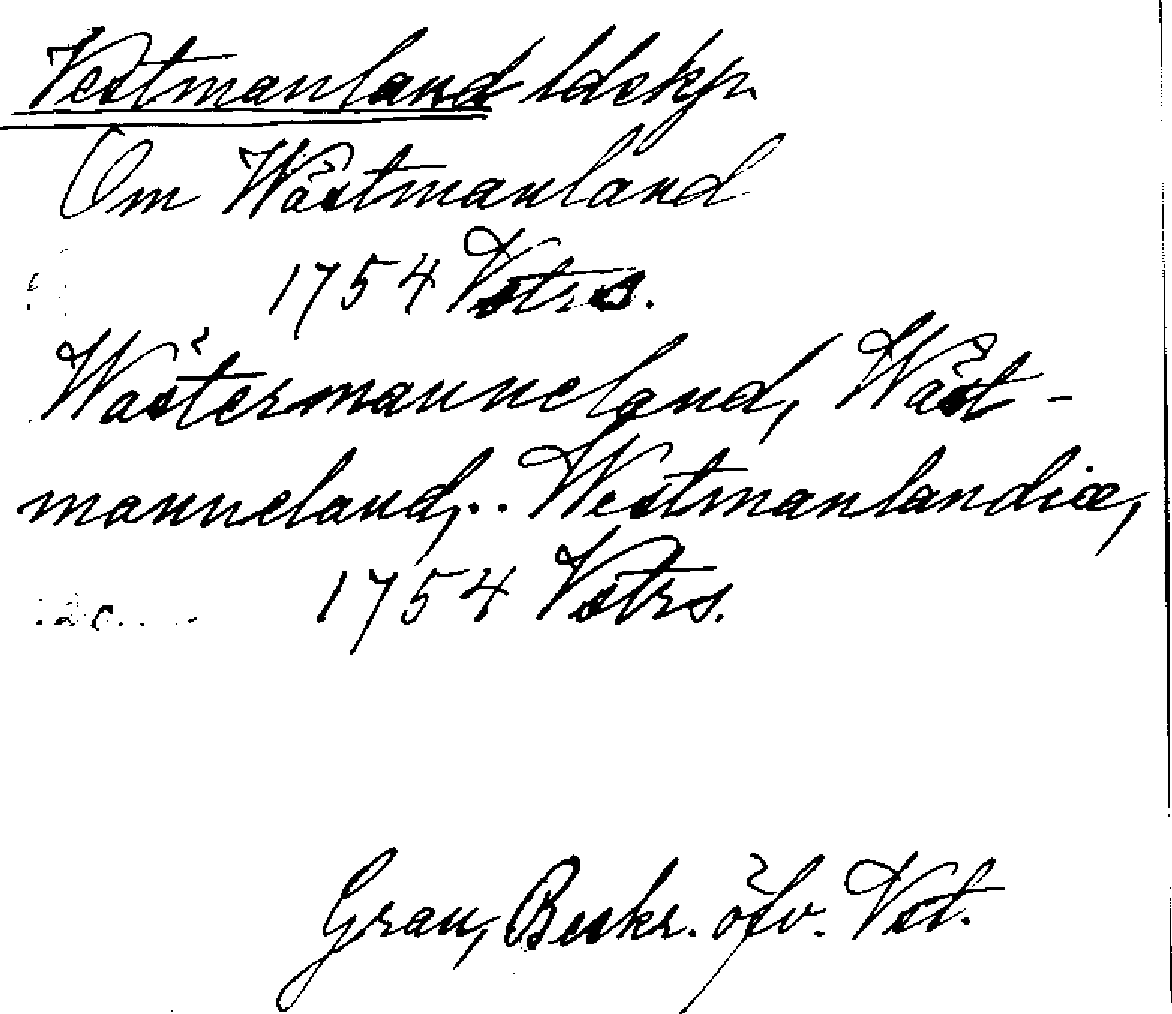 Vestmanland ldskp.
Om Wästmanland
1754 Vstrs.
Wästermanneland, Wäst-
manneland,.. Westmanlandiæ,
1754 Vstrs.
Grau, Beskr. öfv. Vstl.